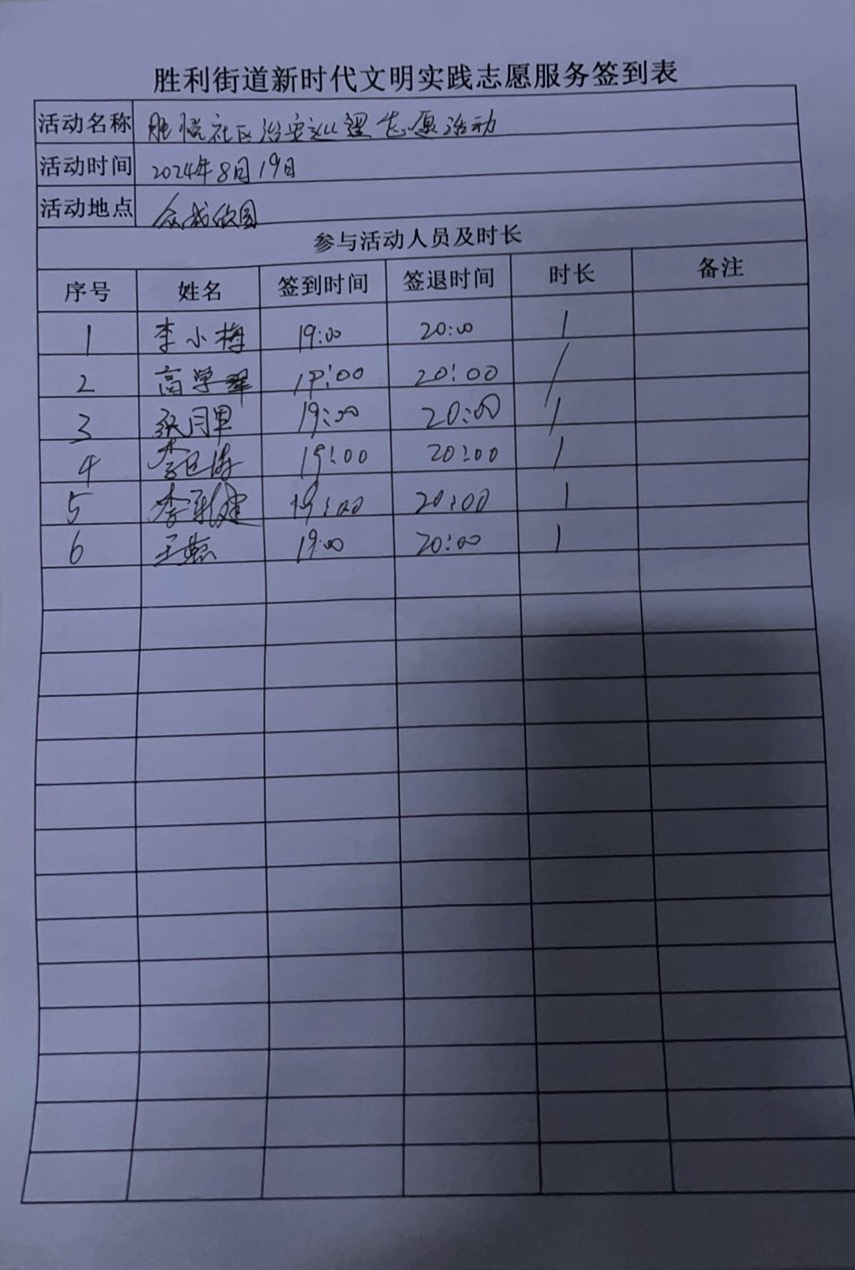 胜利街道新时代文明实践志愿服务签到表
活动名称 社区治安巡逻志愿活动
活动时间 2024年8月19日
活动地点
参与活动人员及时长
序号 姓名 签到时间 签退时间 时长 备注
1 李小梅 19:00 20:00 1
2 高学翠 19:00 20:00 1
3 张月 19:00 20:00 1
4 李 19:00 20:00 1
5 李 19:00 20:00 1
6 王 19:00 20:00 1